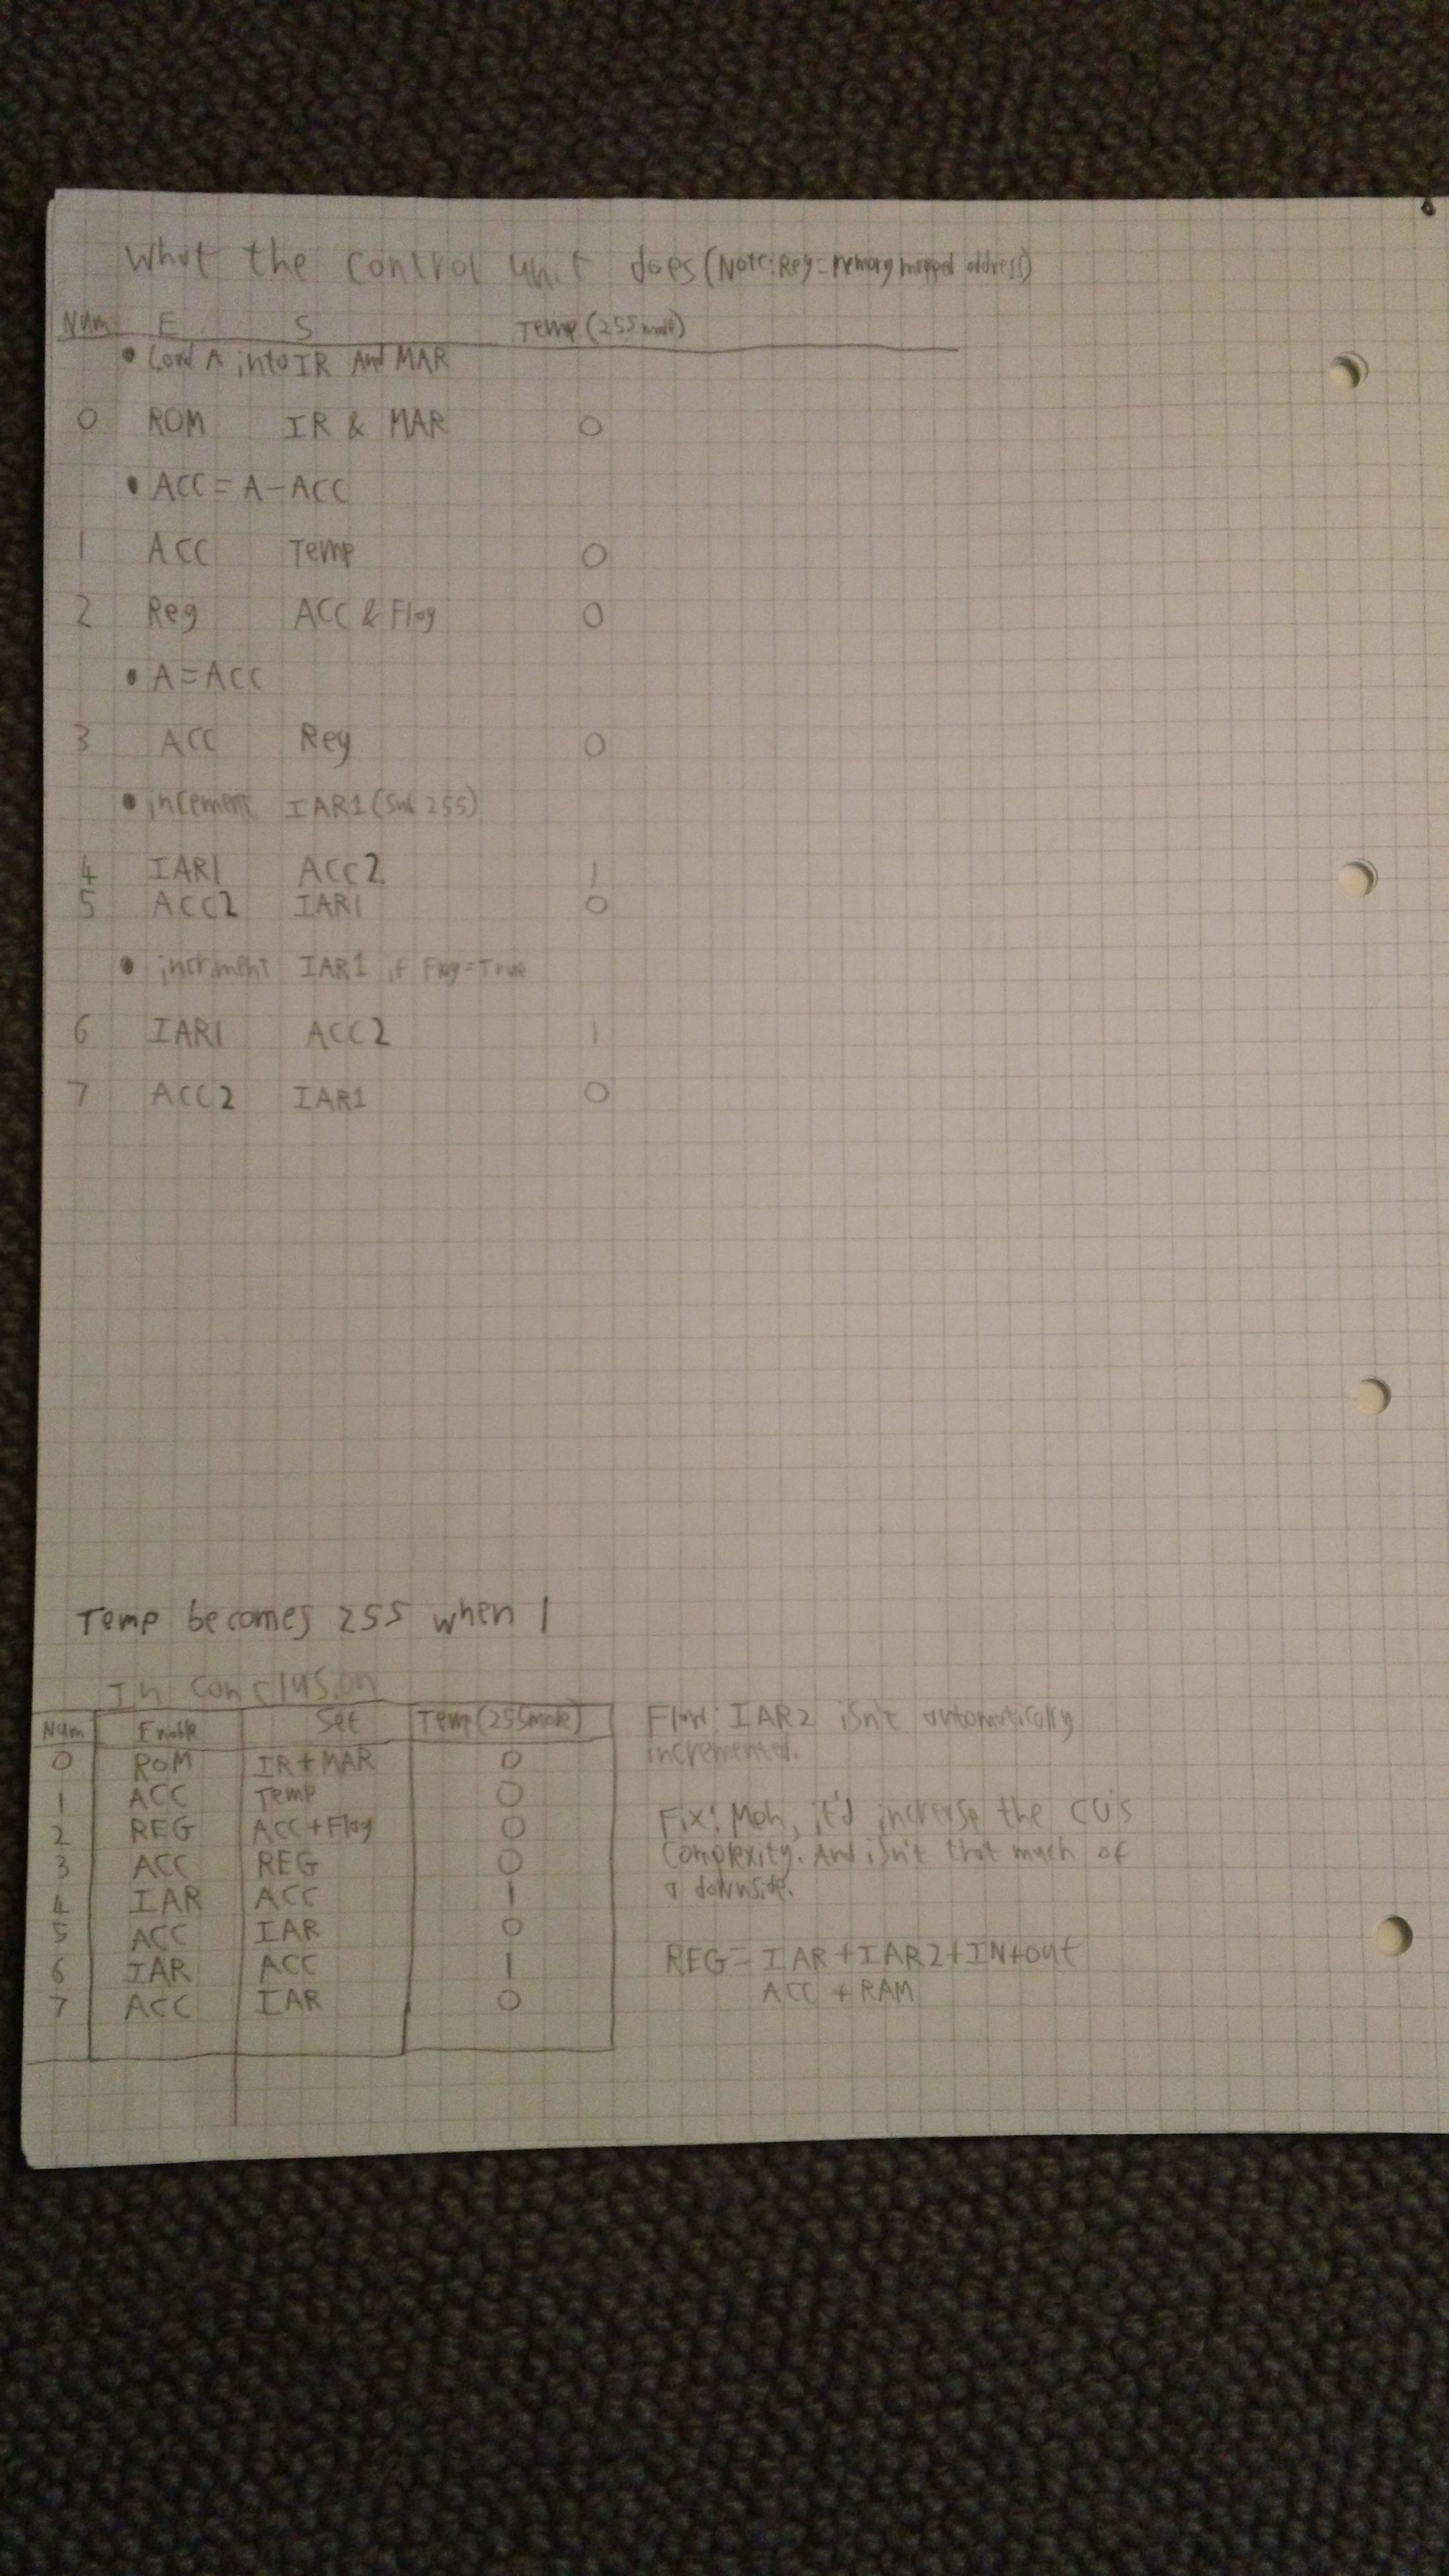 What the control unit does (Note: Reg = memory mapped address)
Num E S Temp (255 mode)
• Load A into IR And MAR
0 ROM IR & MAR 0
• ACC = A - ACC
1 ACC Temp 0
2 Reg ACC & Flag 0
• A = ACC
3 ACC Reg 0
• incement IAR1 (Sub 255)
4 IAR1 ACC2 1
5 ACC2 IAR1 0
• incriment IAR1 if Flag = True
6 IAR1 ACC2 1
7 ACC2 IAR1 0
Temp becomes 255 when 1
In conclusion
Num Enable Set Temp (255 mode)
0 ROM IR + MAR 0
1 ACC Temp 0
2 REG ACC + Flag 0
3 ACC REG 0
4 IAR ACC 1
5 ACC IAR 0
6 IAR ACC 1
7 ACC IAR 0
Flaw: IAR2 isn't automatically
incremented.
Fix: Meh, it'd increase the CU's
complexity. And isn't that much of
a downside.
REG = IAR + IAR2 + IN + out
ACC + RAM